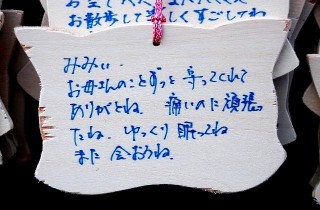 お散歩して楽しくすごしてね
みみぃ.
お母さんのことずっと守ってくれて
ありがとね. 痛いのに頑張っ
たね. ゆっくり眠ってね
また会おうね.